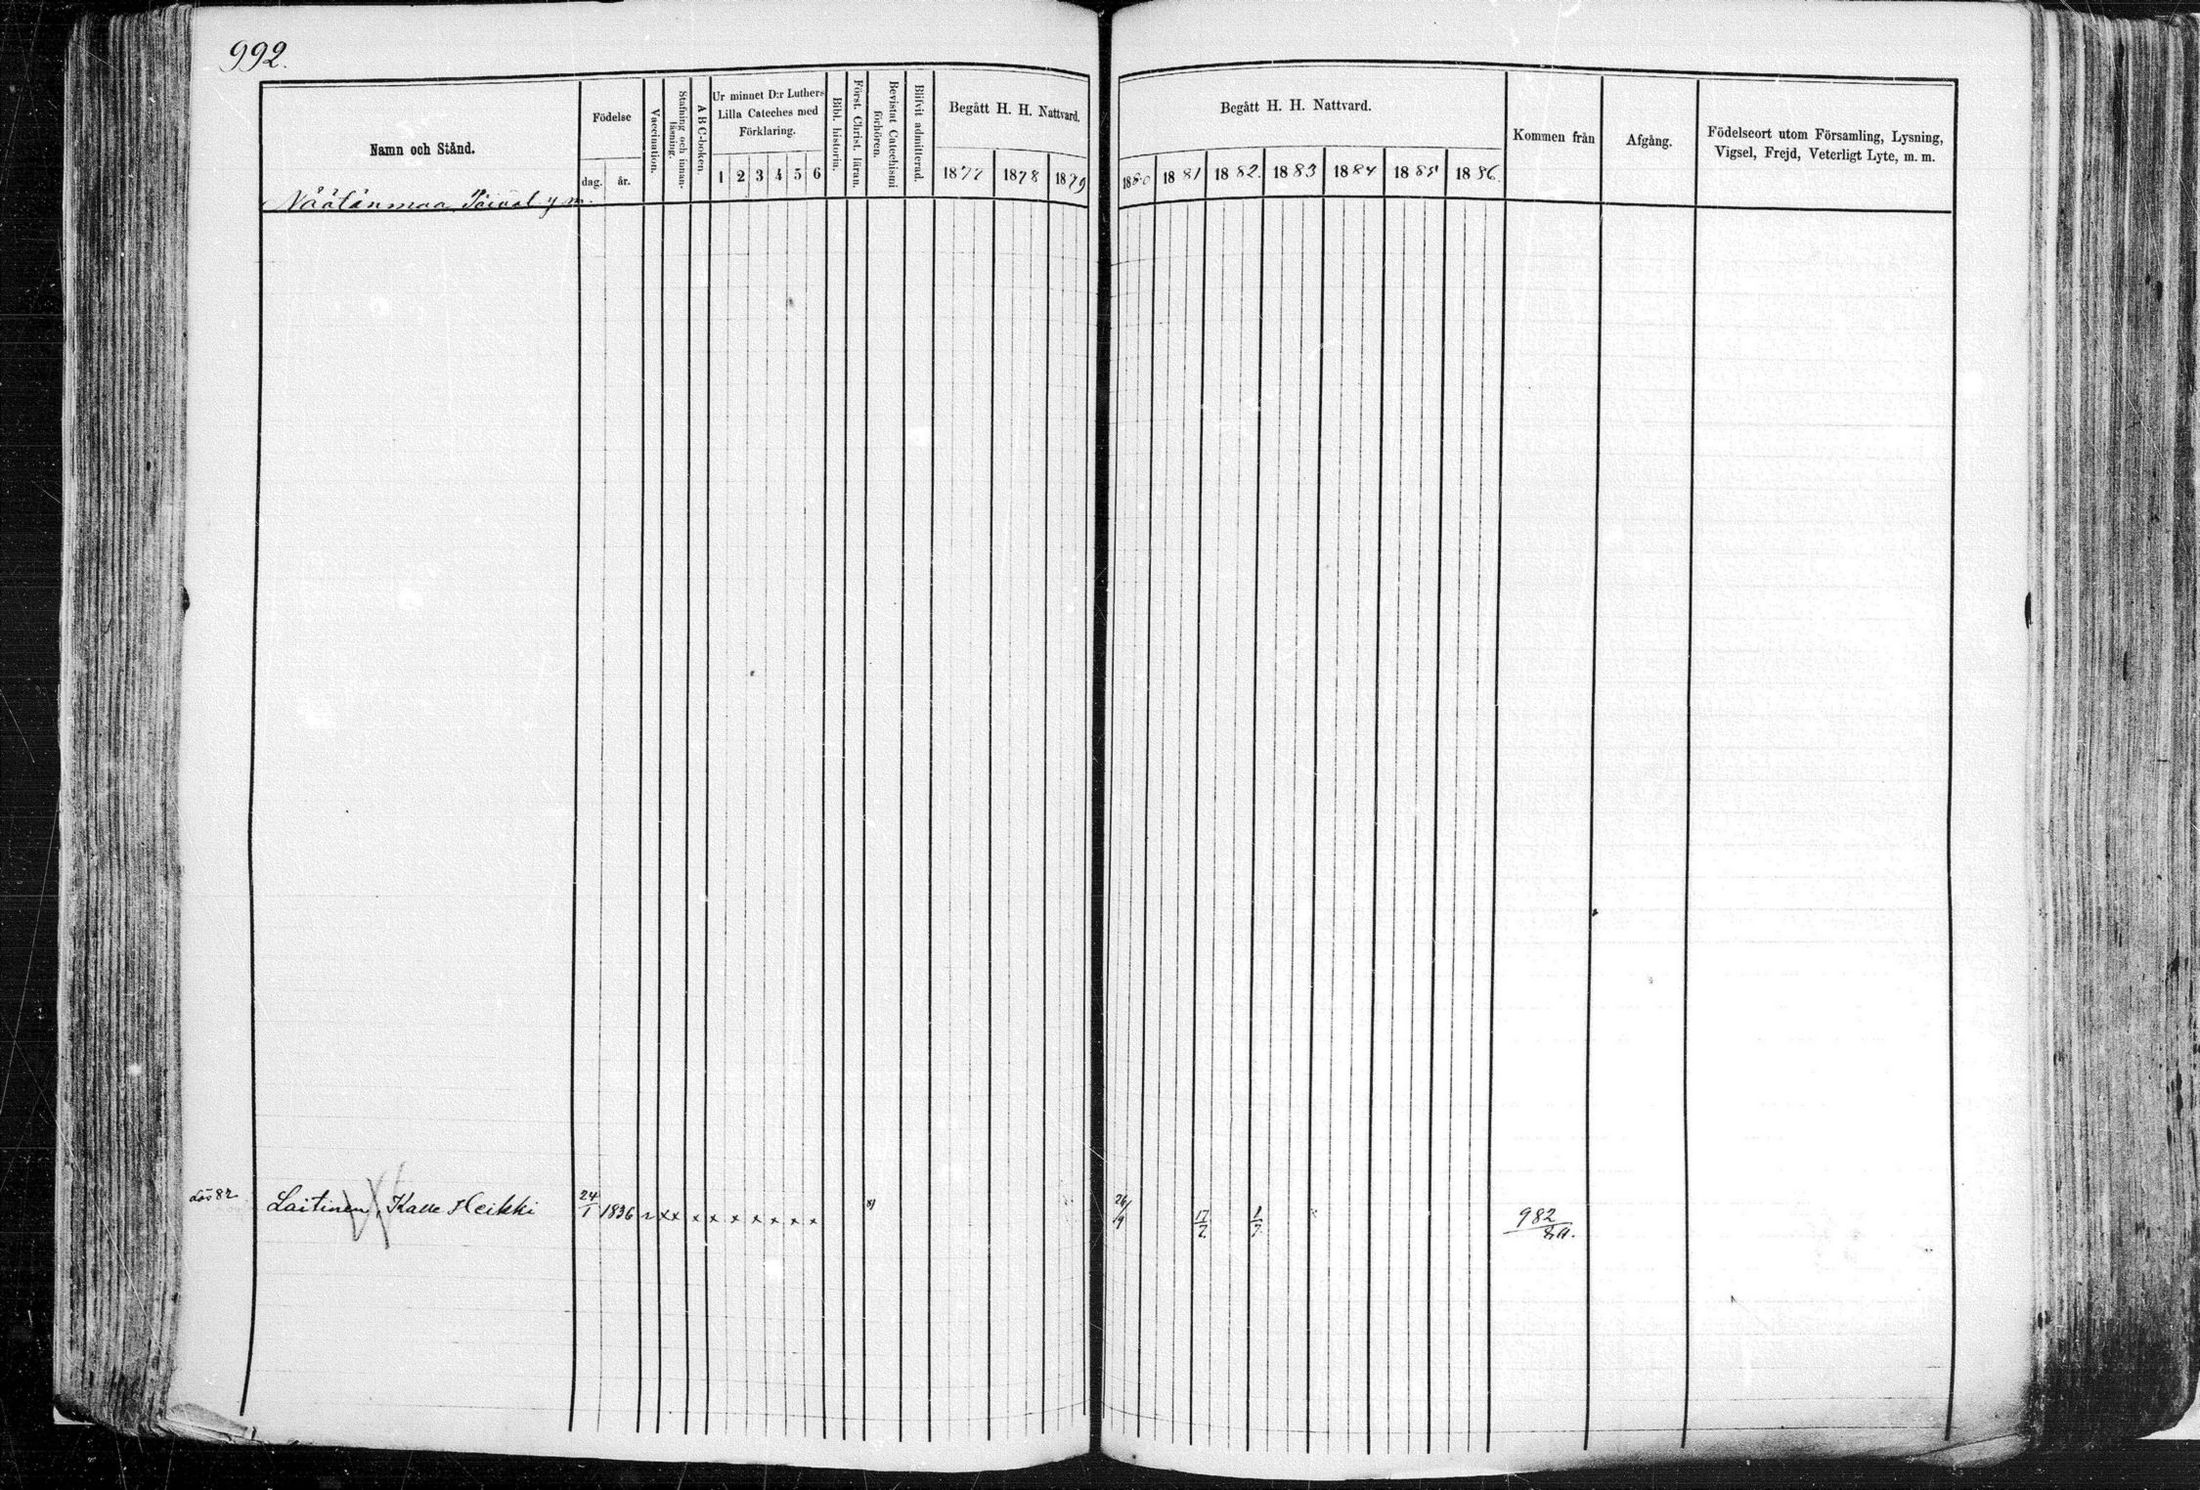 992.
Namn och Stånd.
Födelse
dag.
år.
Vaccination.
Stafning och innan-
läsning.
A B C-boken.
Ur minnet D:r Luthers
Lilla Cateches med
Förklaring.
1 2 3 4 5 6
Bibl. historia.
Först. Christ. läran.
Bevistat Catechismi
förhören.
Blifvit admitterad.
Begått H. H. Nattvard.
1877 1878 1879
Begått H. H. Nattvard.
1880 1881 1882 1883 1884 1885 1886
Kommen från
Afgång.
Födelseort utom Församling, Lysning,
Vigsel, Frejd, Veterligt Lyte, m. m.
Näätänmaa y m.
82 Laitinen, Kalle Heikki 24/1 1836 x x x x x x x x x 26/9 17/7 1/7 982/80.